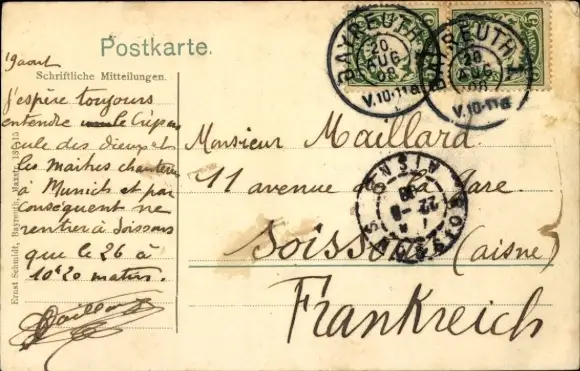 Postkarte.
BAYREUTH 1
20.
AUG
08
V.10-11
BAYREUTH 1
20.
AUG
08
V.10-11
19 aout
Schriftliche Mitteilungen.
j'espère toujours
entendre le Crépus
cule des dieux et
les maitres chanteurs
à Munich et par
conséquent ne
rentrer à Soissons
que le 26 à
10h20 matin.
Maillard
Monsieur Maillard
11 avenue de la Gare
Soissons (aisne)
Frankreich
SOISSONS
AISNE
22 - 8
08
Ernst Schmidt, Bayreuth, Maxstr.